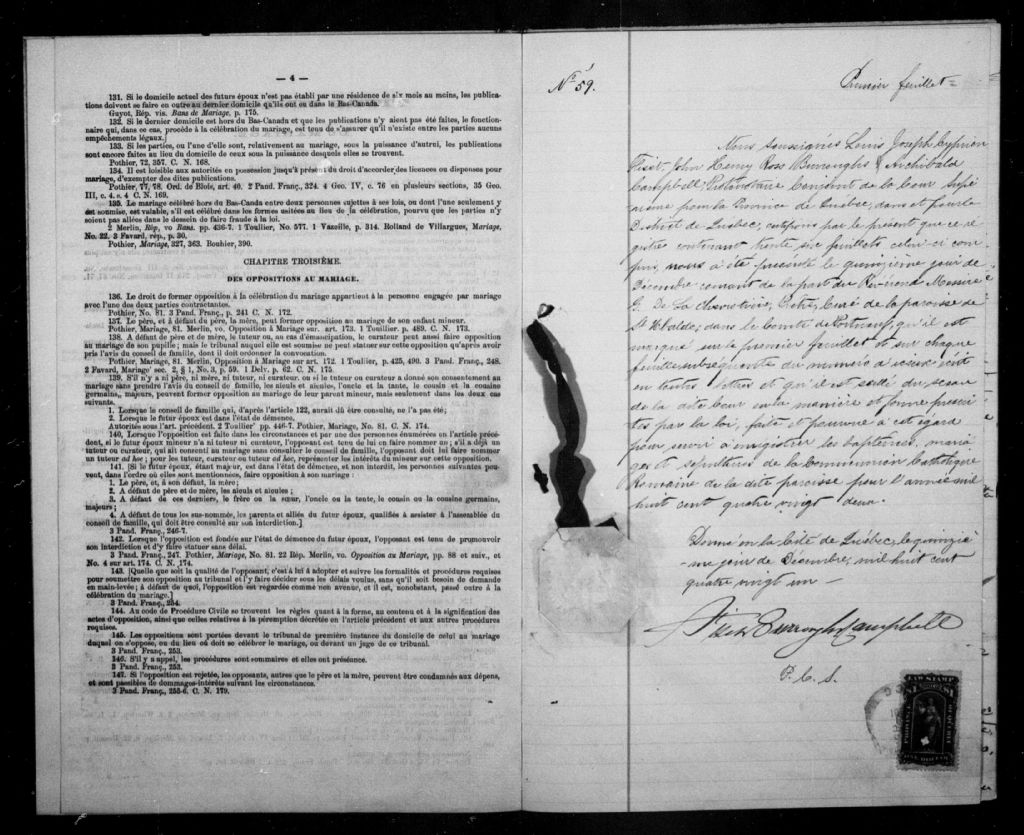 — 4 —
131. Si le domicile actuel des futurs époux n'est pas établi par une résidence de six mois au moins, les publica-
tions doivent se faire en outre au dernier domicile qu'ils ont eu dans le Bas-Canada.
Guyot, Rép. vis. Bans de Mariage, p. 175.
132. Si le dernier domicile est hors du Bas-Canada et que les publications n'y aient pas été faites, le fonction-
naire qui, dans ce cas, procède à la célébration du mariage, est tenu de s'assurer qu'il n'existe entre les parties aucuns
empêchements légaux.
133. Si les parties, ou l'une d'elle sont, relativement au mariage, sous la puissance d'autrui, les publications
sont encore faites au lieu du domicile de ceux sous la puissance desquels elles se trouvent.
Pothier, 72, 357. C. N. 168.
134. Il est loisible aux autorités en possession jusqu'à présent du droit d'accorder des licences ou dispenses pour
mariage, d'exempter des dites publications.
Pothier, 77, 78. Ord. de Blois, art. 40. 2 Pand. Franç., 324. 4 Geo. IV, c. 76 en plusieurs sections, 35 Geo.
III, c. 4. s. 4 C. N. 169.
135. Le mariage célébré hors du Bas-Canda entre deux personnes sujettes à ses lois, ou dont l'une seulement y
est soumise, est valable, s'il est célébré dans les formes usitées au lieu de la célébration, pourvu que les parties n'y
soient pas allées dans le dessein de faire fraude à la loi.
2 Merlin, Rép, vo Bans. pp. 436-7. 1 Toullier, No. 577. 1 Vazeille, p. 314. Rolland de Villargues, Mariage,
No. 22. 3 Favard, rép., p. 30.
Pothier, Mariage, 327, 363. Bouhier, 390.
CHAPITRE TROISIÈME.
DES OPPOSITIONS AU MARIAGE.
136. Le droit de former opposition à la célébration du mariage appartient à la personne engagée par mariage
avec l'une des deux parties contractantes.
Pothier, No. 81. 3 Pand. Franç., p. 241 C. N. 172.
137. Le père, et à défaut du père, la mère, peut former opposition au mariage de son enfant mineur.
Pothier, Mariage, 81. Merlin, vo. Opposition à Mariage sur. art. 173. 1 Toullier, p. 489. C. N. 173.
138. A défaut de père et de mère, le tuteur ou, au cas d'émancipation, le curateur peut aussi faire opposition
au mariage de son pupille; mais le tribunal auquel elle est soumise ne peut statuer sur cette opposition qu'après avoir
pris l'avis du conseil de famille, dont il doit ordonner la convocation.
Pothier, Mariage, 81. Merlin, Opposition à Mariage sur art. 172. 1 Toullier, p. 425, 490. 3 Pand. Franç., 248.
2 Favard, Mariage sec. 2, § 1, No. 3, p. 59. 1 Delv. p. 62. C. N. 175.
139. S'il n'y a ni père, ni mère, ni tuteur, ni curateur, ou si le tuteur ou curateur a donné son consentement au
mariage sans prendre l'avis du conseil de famille, les aïeuls et aïeules, l'oncle et la tante, le cousin et la cousine
germains, majeurs, peuvent former opposition au mariage de leur parent mineur, mais seulement dans les deux cas
suivants.
1. Lorsque le conseil de famille qui, d'après l'article 122, aurait dû être consulté, ne l'a pas été;
2. Lorsque le futur époux est dans l'état de démence.
Autorités sous l'art. précédent. 2 Toullier pp. 446-7. Pothier, Mariage, No. 81. C. N. 174.
140. Lorsque l'opposition est faite dans les circonstances et par une des personnes énumérées en l'article précé-
dent, si le futur époux mineur n'a ni tuteur ni curateur, l'opposant est tenu de lui en faire nommer un; s'il a déjà un
tuteur ou curateur, qui ait consenti au mariage sans consulter le conseil de famille, l'opposant doit lui faire nommer
un tuteur ad hoc; pour les tuteur, curateur ou tuteur ad hoc, représenter les intérêts du mineur sur cette opposition.
141. [Si le futur époux, étant majeur, est dans l'état de démence, et non interdit, les personnes suivantes peu-
vent, dans l'ordre où elles sont mentionnées, faire opposition à son mariage:
1. Le père, et, à son défaut, la mère;
2. A défaut de père et de mère, les aïeuls et aïeules;
3. A défaut de ces derniers, le frère ou la sœur, l'oncle ou la tante, le cousin ou la cousine germains,
majeurs;
4. A défaut de tous les sus-nommés, les parents et alliés du futur époux, qualifiés à assister à l'assemblée du
conseil de famille, qui doit être consulté sur son interdiction.]
3 Pand. Franç., 246-7.
142. Lorsque l'opposition est fondée sur l'état de démence du futur époux, l'opposant est tenu de promouvoir
son interdiction et d'y faire statuer sans délai.
3 Pand. Franç., 247. Pothier, Mariage, No. 81. 22 Rép. Merlin, vo. Opposition au Mariage, pp. 88 et suiv., et
No. 4 sur art. 174. C. N. 174.
143. [Quelle que soit la qualité de l'opposant, c'est à lui à adopter et suivre les formalités et procédures requises
pour soumettre son opposition au tribunal et l'y faire décider sous les délais voulus, sans qu'il soit besoin de demande
en main-levée; à défaut de quoi, l'opposition est regardée comme non avenue, et il est, nonobstant, passé outre à la
célébration du mariage.]
3 Pand. Franç., 254.
144. Au code de Procédure Civile se trouvent les règles quant à la forme, au contenu et à la signification des
actes d'opposition, ainsi que celles relatives à la péremption décrétée en l'article précédent et aux autres procédures
requises.
145. Les oppositions sont portées devant le tribunal de première instance du domicile de celui au mariage
duquel on s'oppose, ou du lieu où doit se célébrer le mariage, ou devant un juge de ce tribunal.
3 Pand. Franç., 253.
146. S'il y a appel, les procédures sont sommaires et elles ont préséance.
3 Pand. Franç., 253.
147. Si l'opposition est rejetée, les opposants, autres que le père et la mère, peuvent être condamnés aux dépens,
et sont passibles de dommages-intérêts suivant les circonstances.
3 Pand. Franç., 255-6. C. N. 179.
No 59.
Premier feuillet =
Nous soussignés Louis Joseph Cyprien
Fiset, John Henry Ross Burroughs & Archibald
Campbell, Protonotaire Conjoint de la Cour Supé-
rieure pour la Province de Québec, dans et pour le
District de Québec, certifions par le présent que ce ré-
gistre contenant trente six feuillets celui-ci com-
pris, nous a été présenté le quinzième jour de
Décembre courant de la part du Révérend Messire
G. De La Chevrotière, Prêtre, Curé de la paroisse de
St Ubalde, dans le Comté de Portneuf, qu'il est
marqué sur le premier feuillet et sur chaque
feuillet subséquent du numéro d'icelui écrit
en toutes lettres et qu'il est scellé du sceau
de la dite Cour en la manière et forme prescri-
tes par la loi, faite et pourvue à cet égard
pour servir à enregistrer les baptêmes, maria-
ges et sépultures de la Communion Catholique
Romaine de la dite paroisse pour l'année mil
huit cent quatre vingt deux.
Donné en la Cité de Québec, le quinziè-
-me jour de Décembre, mil huit cent
quatre vingt un —
Fiset Burroughs Campbell
P. C. S.
LAW STAMP
$1 $1
ONE DOLLAR